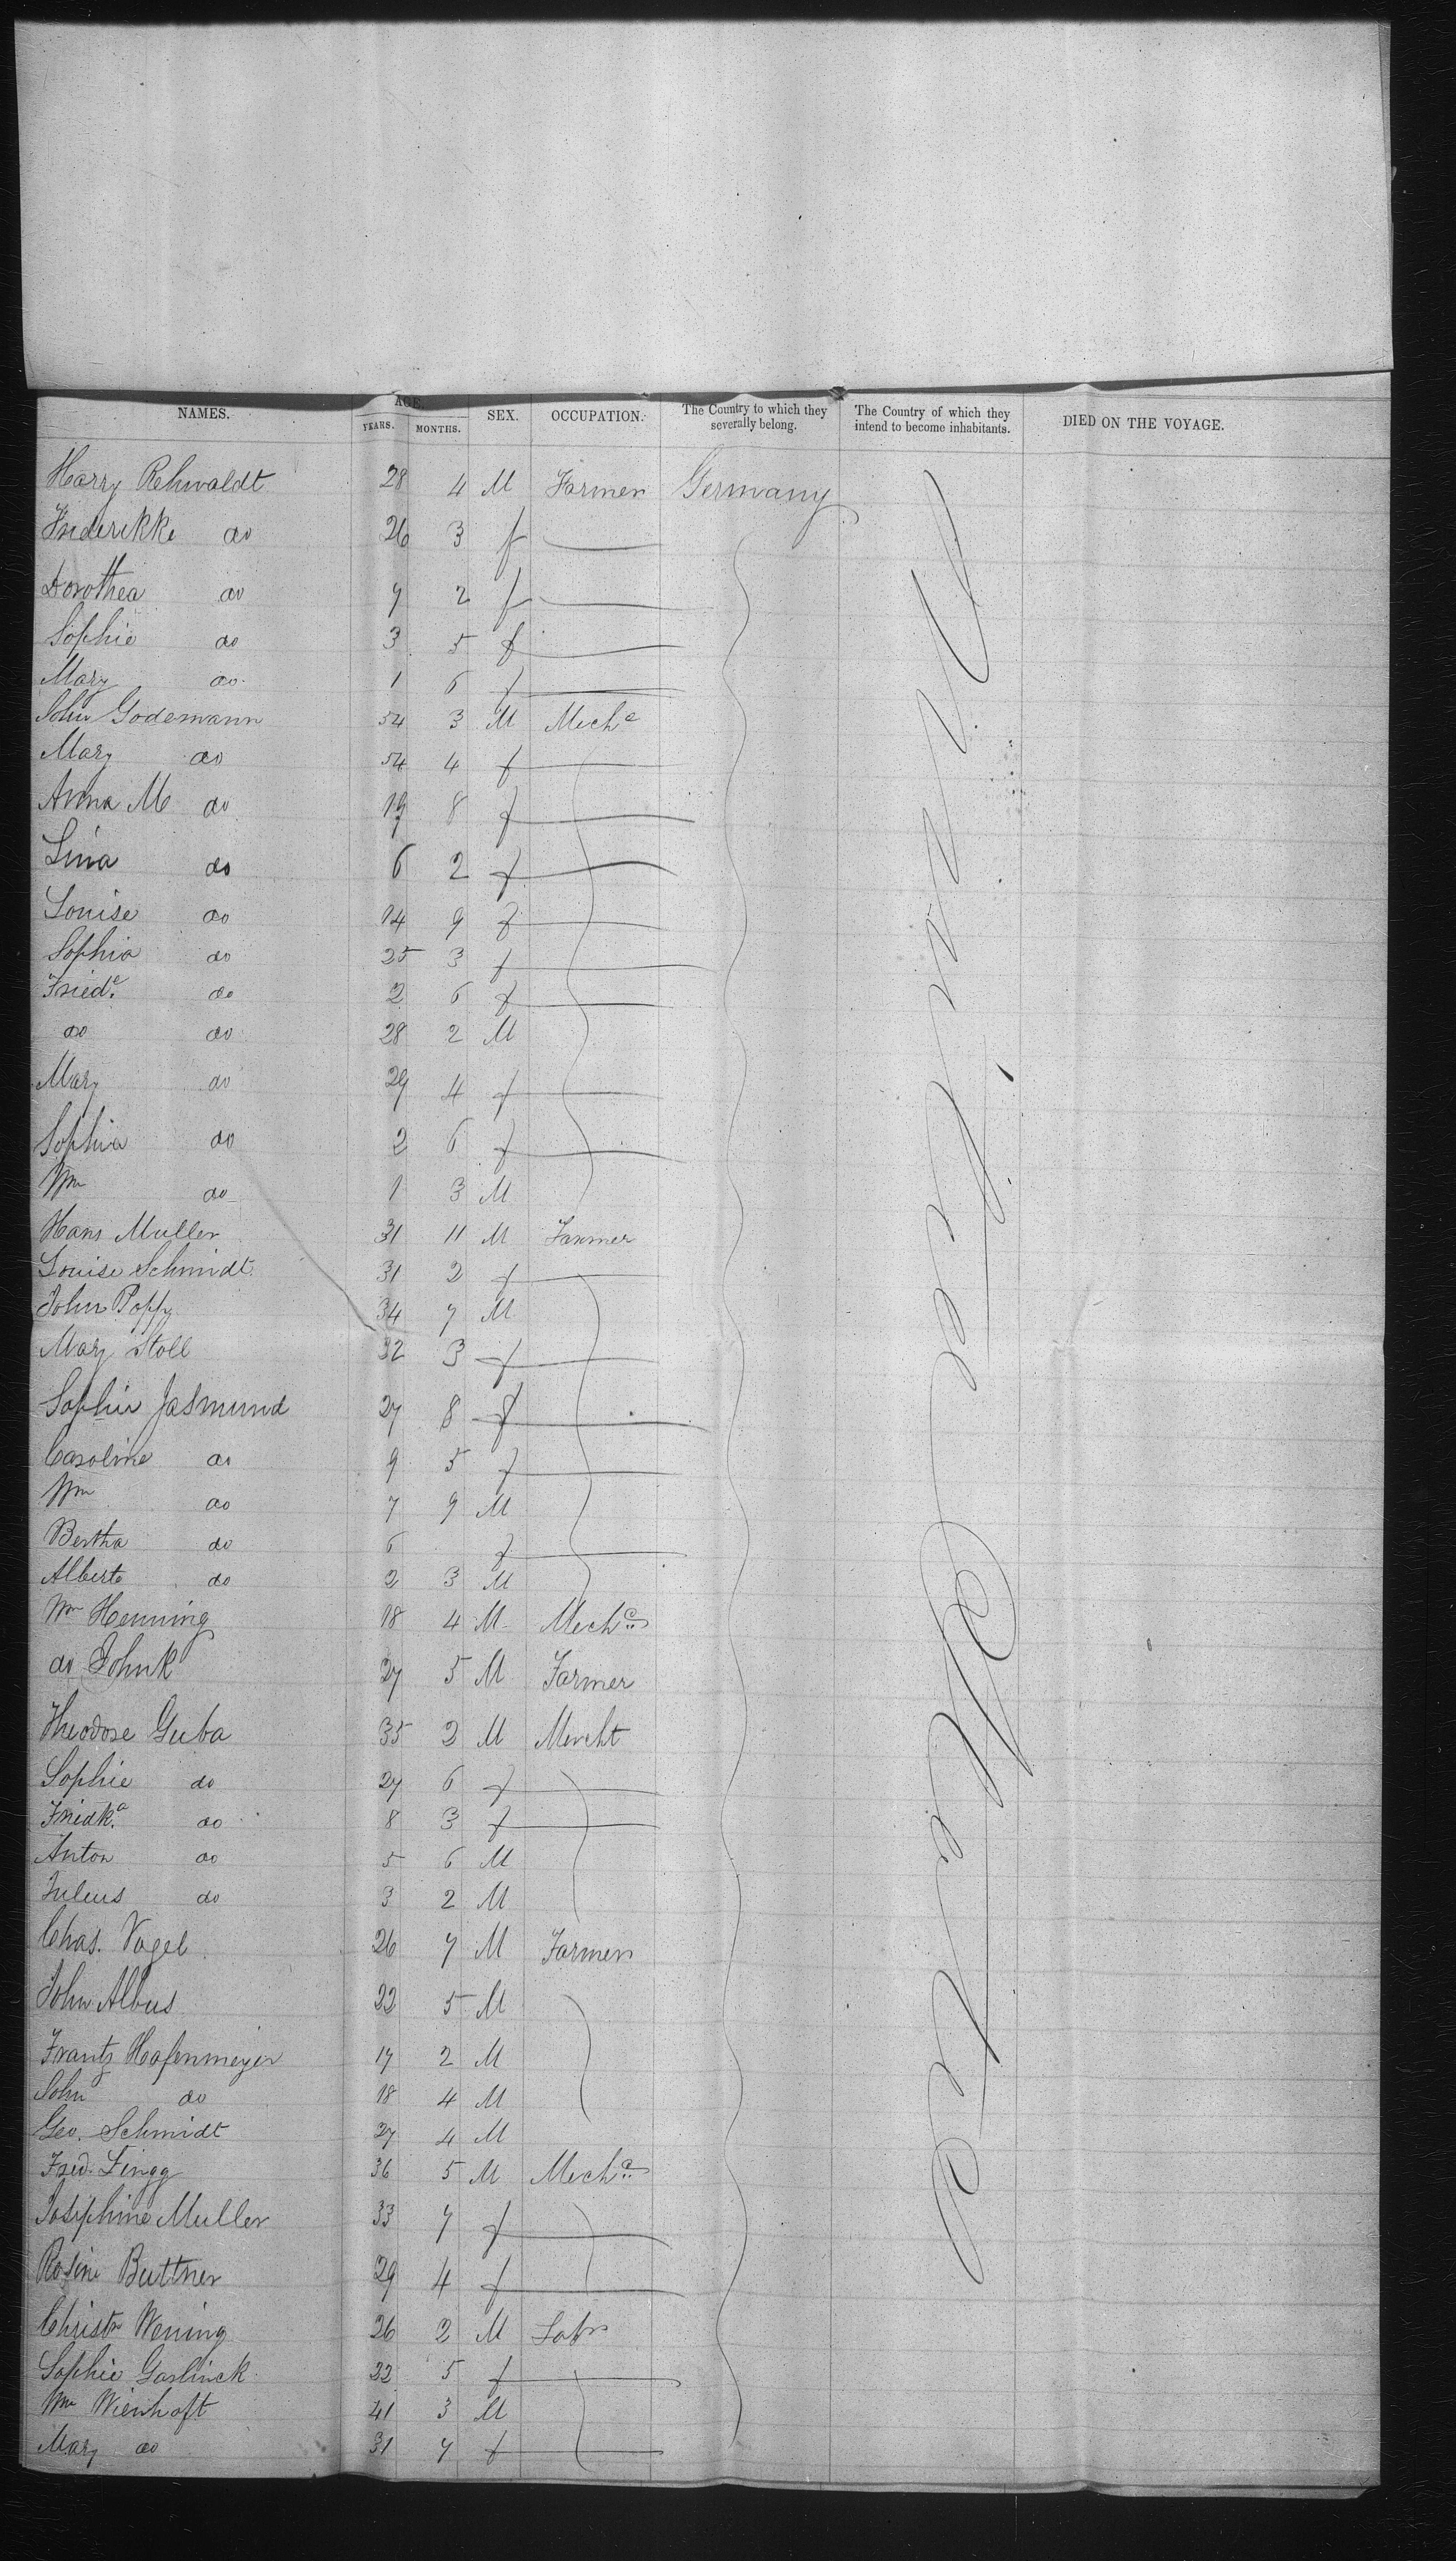 NAMES. AGE. YEARS. MONTHS. SEX. OCCUPATION. The Country to which they severally belong. The Country of which they intend to become inhabitants. DIED ON THE VOYAGE.
Harry Rehwaldt 28 4 M Farmer Germany
Friderikke do 26 3 f
Dorothea do 7 2 f
Sophie do 3 5 f
Mary do 1 6 f
John Godemann 54 3 M Mech c
Mary do 54 4 f
Anna M do 19 8 f
Lina do 6 2 f
Louise do 14 9 f
Sophia do 25 3 f
Fried e do 2 6 f
do do 28 2 M
Mary do 29 4 f
Sophia do 2 6 f
Wm do 1 3 M
Hans Muller 31 11 M Farmer
Louise Schmidt 31 2 f
John Popp 34 7 M
Mary Stoll 32 3 f
Sophie Jasmund 27 8 f
Caroline do 9 5 f
Wm do 7 9 M
Bertha do 6 f
Alberto do 2 3 M
Wm Henning 18 4 M Mech cs
do John R 27 5 M Farmer
Theodore Guba 35 2 M Mercht
Sophie do 27 6 f
Friedk a do 8 3 f
Anton do 5 6 M
Julius do 3 2 M
Chas. Vogel 26 7 M Farmer
John Albus 22 5 M
Frantz Hafenmeyer 17 2 M
John do 18 4 M
Geo. Schmidt 27 4 M
Fried. Lingg 36 5 M Mech cs
Josephine Muller 33 7 f
Rosine Buttner 29 4 f
Christn Wening 26 2 M Labr
Sophie Garlinck 22 5 f
Wm Wienhoft 41 3 M
Mary do 31 7 f